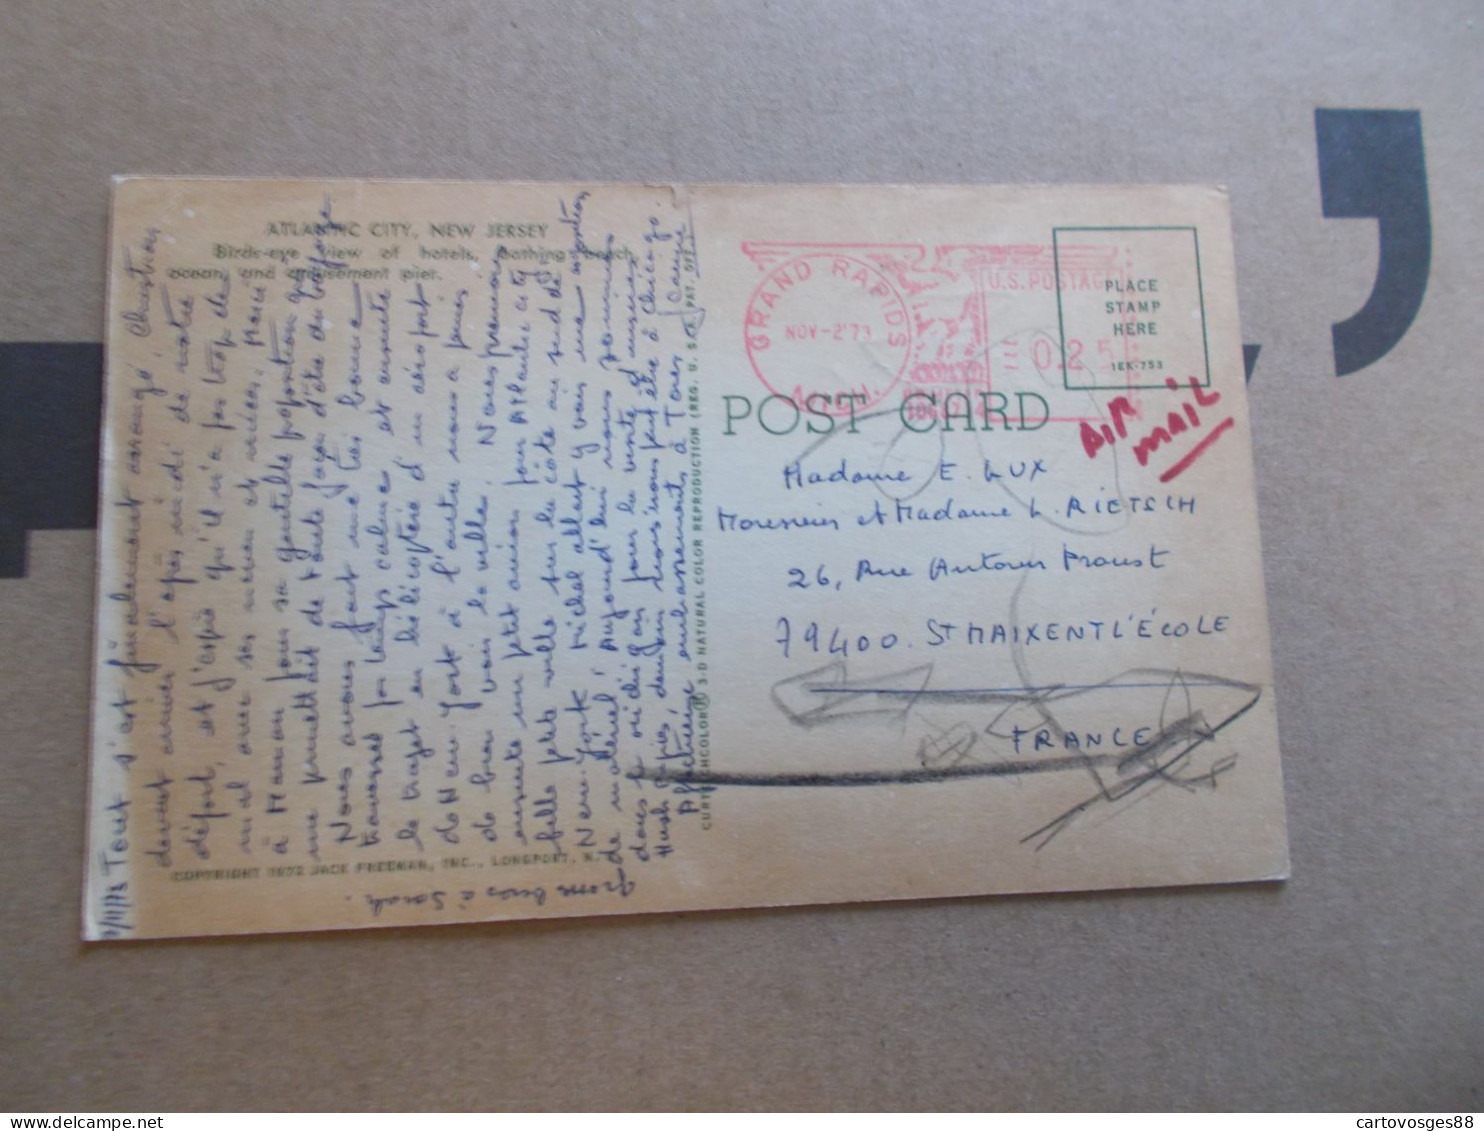 ATLANTIC CITY, NEW JERSEY
Birds-eye view of hotels, bathing beach,
ocean, and amusement pier.
1/11/73 Tout s'est finalement arrangé, Christian
devait arriver l'après midi de notre
départ, et j'espère qu'il n'a pas trop de
mal avec sa maman et mieux, Merci
à Maman pour sa gentille proposition qui
me permettait de toute façon d'être au voyage
Nous avons fait une très bonne
traversée par temps calme et ensuite
le trajet en hélicoptère d'un aéroport
de New-York à l'autre nous a permis
de bien voir la ville. Nous prenions
ensuite un petit avion pour Atlantic city
belle petite ville sur la côte au sud de
New-York. Michel allait y voir une exposition
de matériel, Aujourd'hui nous sommes
dans le michigan pour la vente d'usines
Hush Pupies, demain nous irons peut être à Chicago.
Affectueux embrassements à Tous
Gros bisous à Sarah.
COPYRIGHT 1972 JACK FREEMAN, INC., LONGPORT, N.J.
CURTEICHCOLOR® 3-D NATURAL COLOR REPRODUCTION (REG. U. S. PAT. OFF.)
GRAND RAPIDS
NOV-2'73
MICH.
U.S. POSTAGE
025
PLACE
STAMP
HERE
1EK-753
POST CARD
AIR
MAIL
Madame E. LUX
Monsieur et Madame L. RIETSCH
26, Rue Antonin Proust
79400. ST MAIXENT L'ÉCOLE
FRANCE
cartovosges88